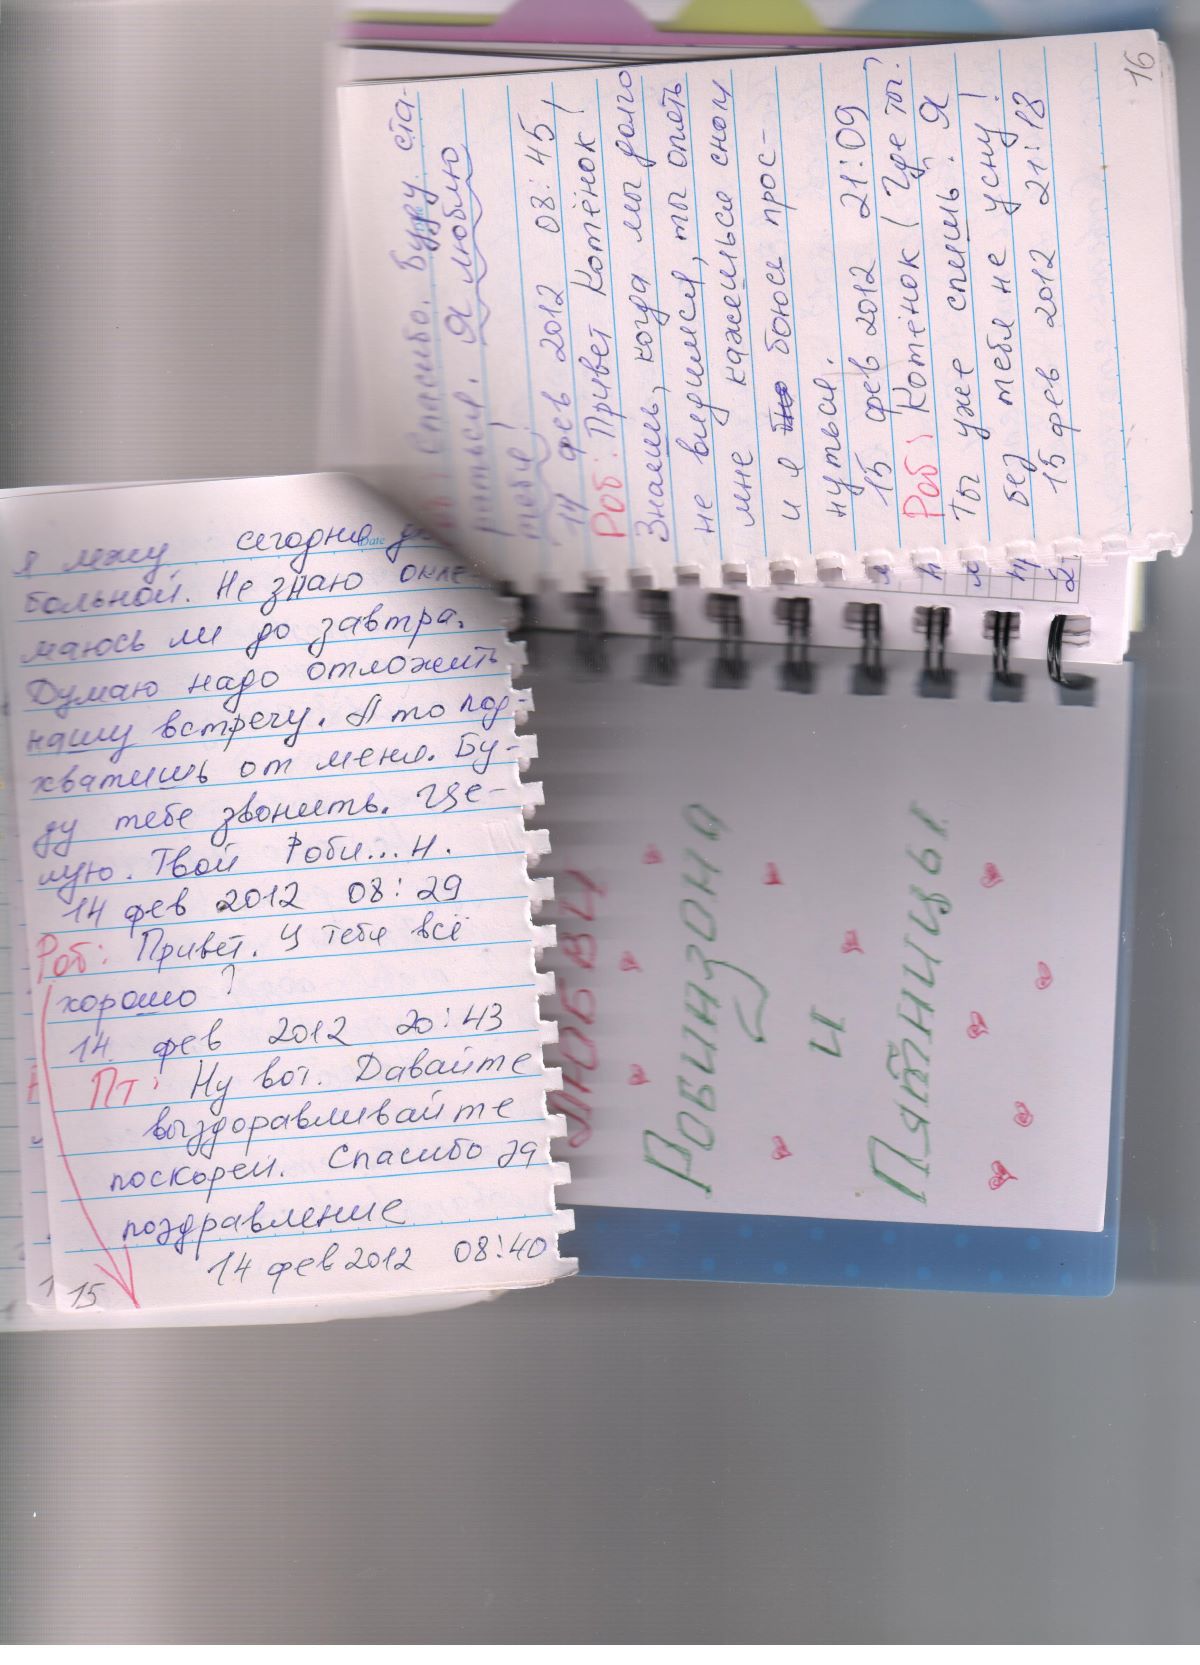 я лежу сегодня
больной. Не знаю окле-
маюсь ли до завтра.
Думаю надо отложить
нашу встречу. А то под-
хватишь от меня. Бу-
ду тебе звонить. Це-
лую. Твой Роби...н.
14 фев 2012 08:29
Роб: Привет. У тебя всё
хорошо?
14 фев 2012 20:43
Пт: Ну вот. Давайте
выздоравливайте
поскорей. Спасибо за
поздравление
14 фев 2012 08:40
15
Спасибо. Буду ста-
раться. Я люблю
тебя!
14 фев 2012 08:45
Роб: Привет Котёнок!
Знаешь, когда мы долго
не видимся, ты опять
мне кажешься сном
и я боюсь прос-
нуться.
15 фев 2012 21:09
Роб: Котёнок! Где ты?
Ты уже спишь? Я
без тебя не усну!
15 фев 2012 21:18
16
ЛЮБВИ
Робинзона
и
Пятницы